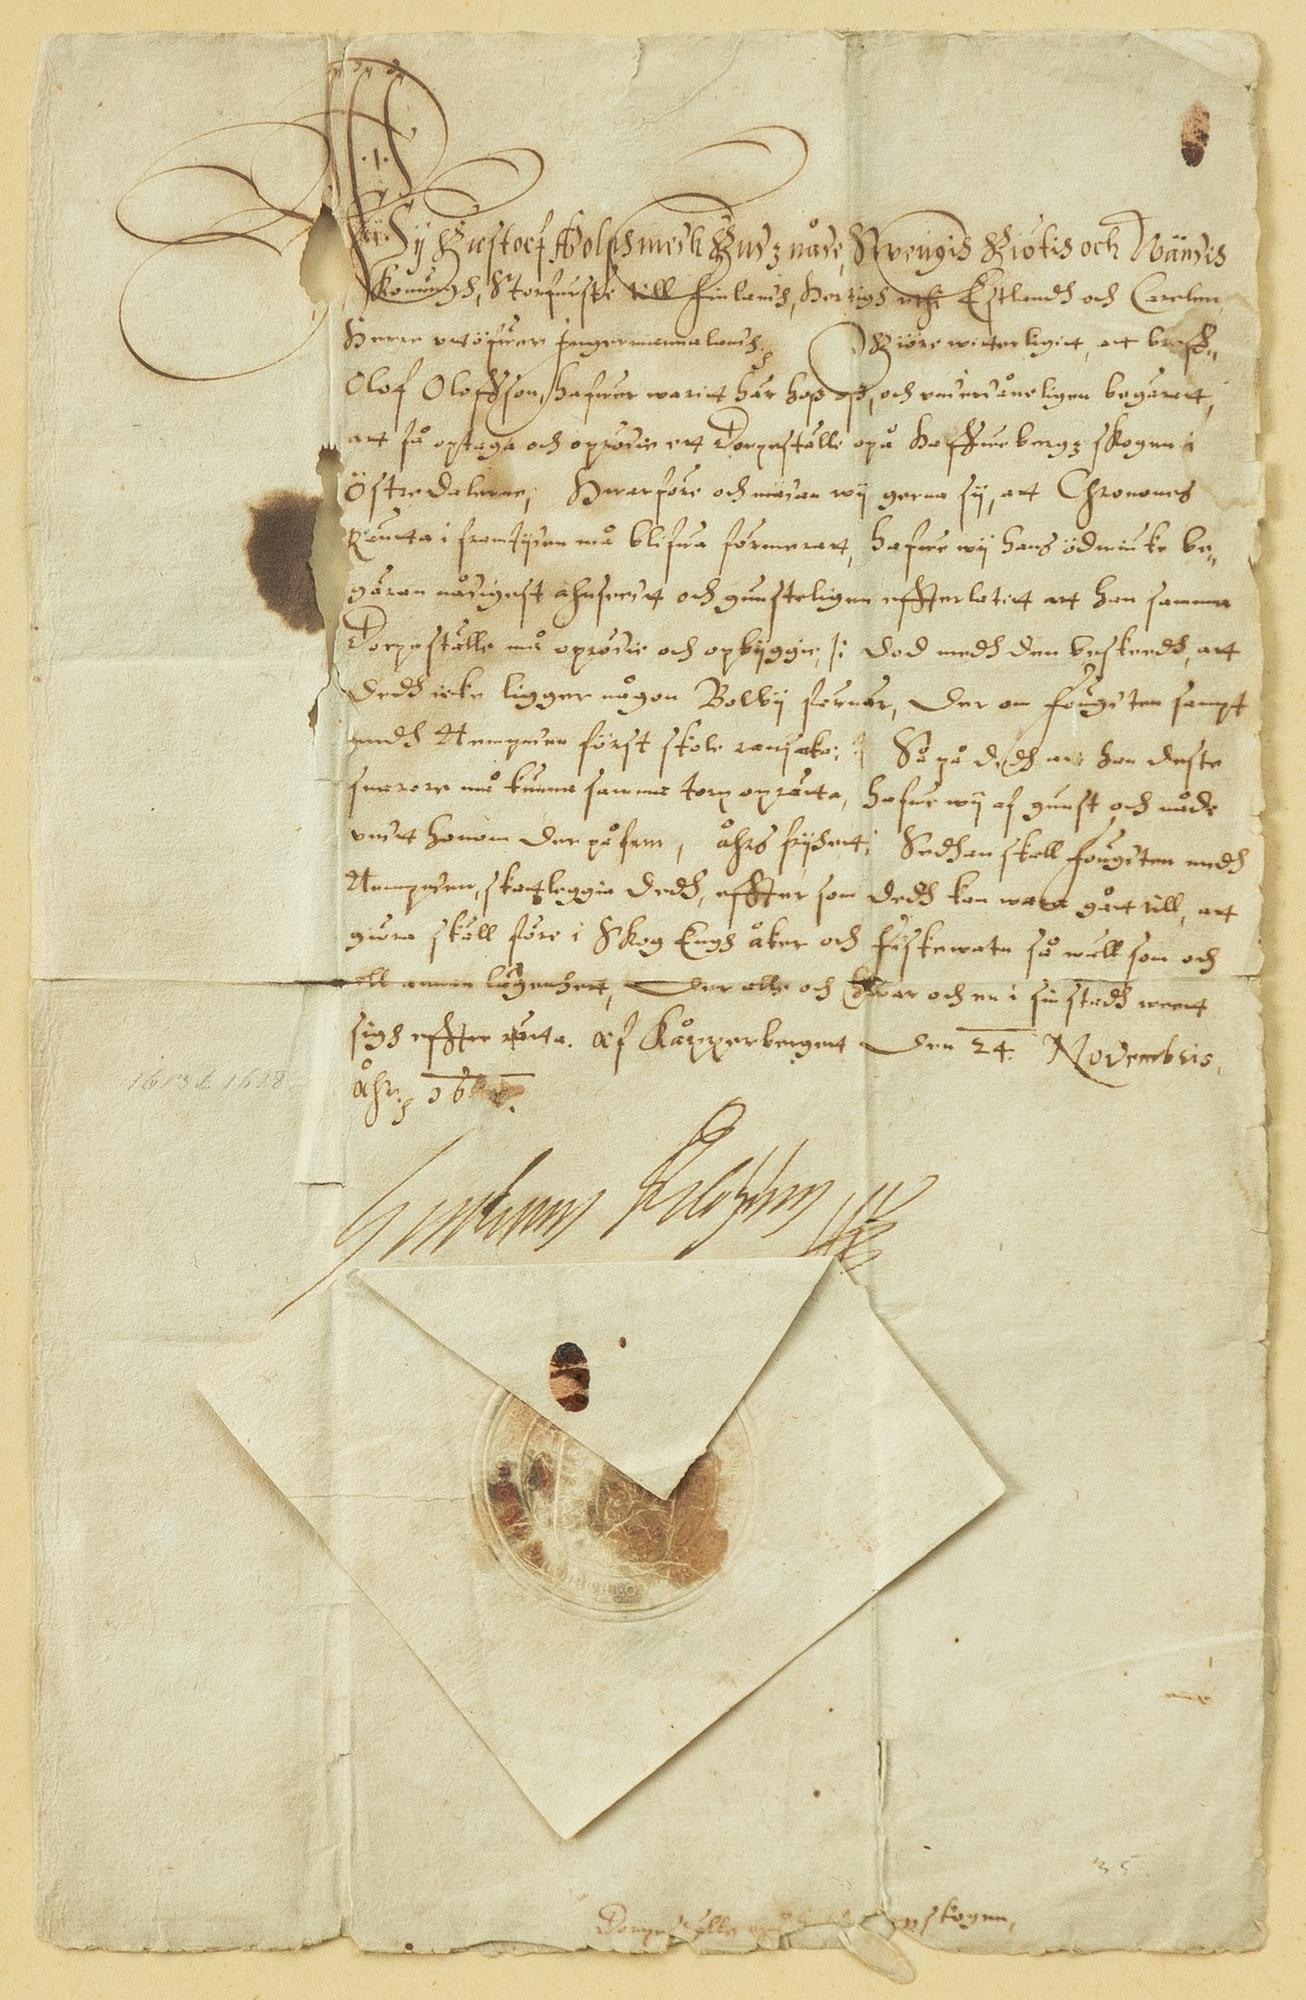 Wij Gustaf Adolph medh Gudz nåde, Swerigis Giötis och Wändis
Konungh, Storfurste till Finlandh, Hertigh uthi Estlandh och Carelen,
Herre utöfwer Ingermannalandh, Giöre witterligitt, att breff:
Olof Oloffson, hafwer waritt här hoss oss, och underdåneligen begäratt,
att få optaga och oprödie ett Torpeställe opå skogen i
Östredalerne, Hwarföre och medan wij gerna sij, att Chronones
Ränta i framtijden må blifwa förmeratt, hafwe wij hans ödmiuke be-
gäran nådigest ahnseedt och gunsteligen effterlatitt att han samma
Torpeställe må oprödie och opbyggie, /: Dod medh den beskeedh, att
dedh icke ligger någon Bolby förnär, der om fougten sampt
medh Nempden först skole ransaka: / Så på dedh att han deste
snarare må kunna samma torp oprätta, hafwe wij af gunst och nåde
undt honom der på fem, åhrs frijhett; Sedhan skall fougten medh
Nempden, skattleggia dedh, effter som dedh kan wara gått till, att
giöra skäll före i Skog Engh åker och fiskewatn så wäll som och
all annan lägenhett, Der alle och hwar och en i sin stadh weett
sigh effter rätta. Af Kåpperberget den 24. Novembris,
Åhr, 16
Gustavus Adolphus
1613 1618
35
Torpeställe skogen,